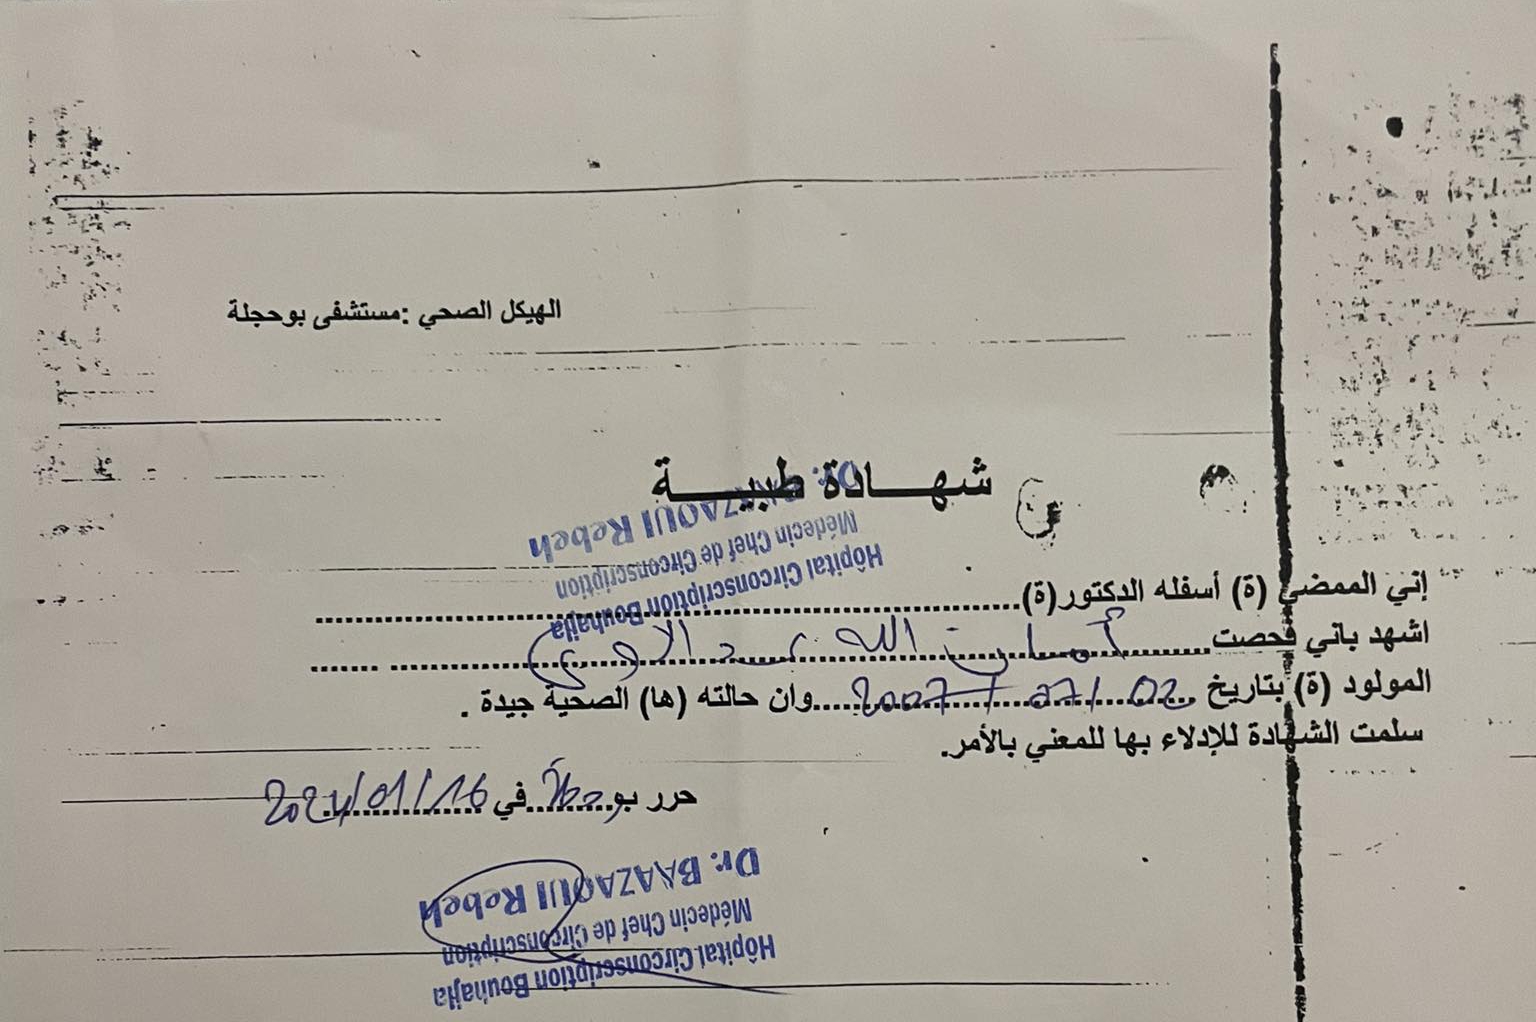 الهيكل الصحي :مستشفى بوحجلة
شهـــادة طبيـــــة
Dr. BAAZAOUI Rebeh
Médecin Chef de Circonscription
Hôpital Circonscription Bouhajla
إني الممضي (ة) أسفله الدكتور(ة)......................................................
اشهد باني فحصت.......... الله ..........
المولود (ة) بتاريخ 02/07/2007 وان حالته (ها) الصحية جيدة .
سلمت الشهادة للإدلاء بها للمعني بالأمر.
حرر بوحجلة في 16/01/2024
Dr. BAAZAOUI Rebeh
Médecin Chef de Circonscription
Hôpital Circonscription Bouhajla